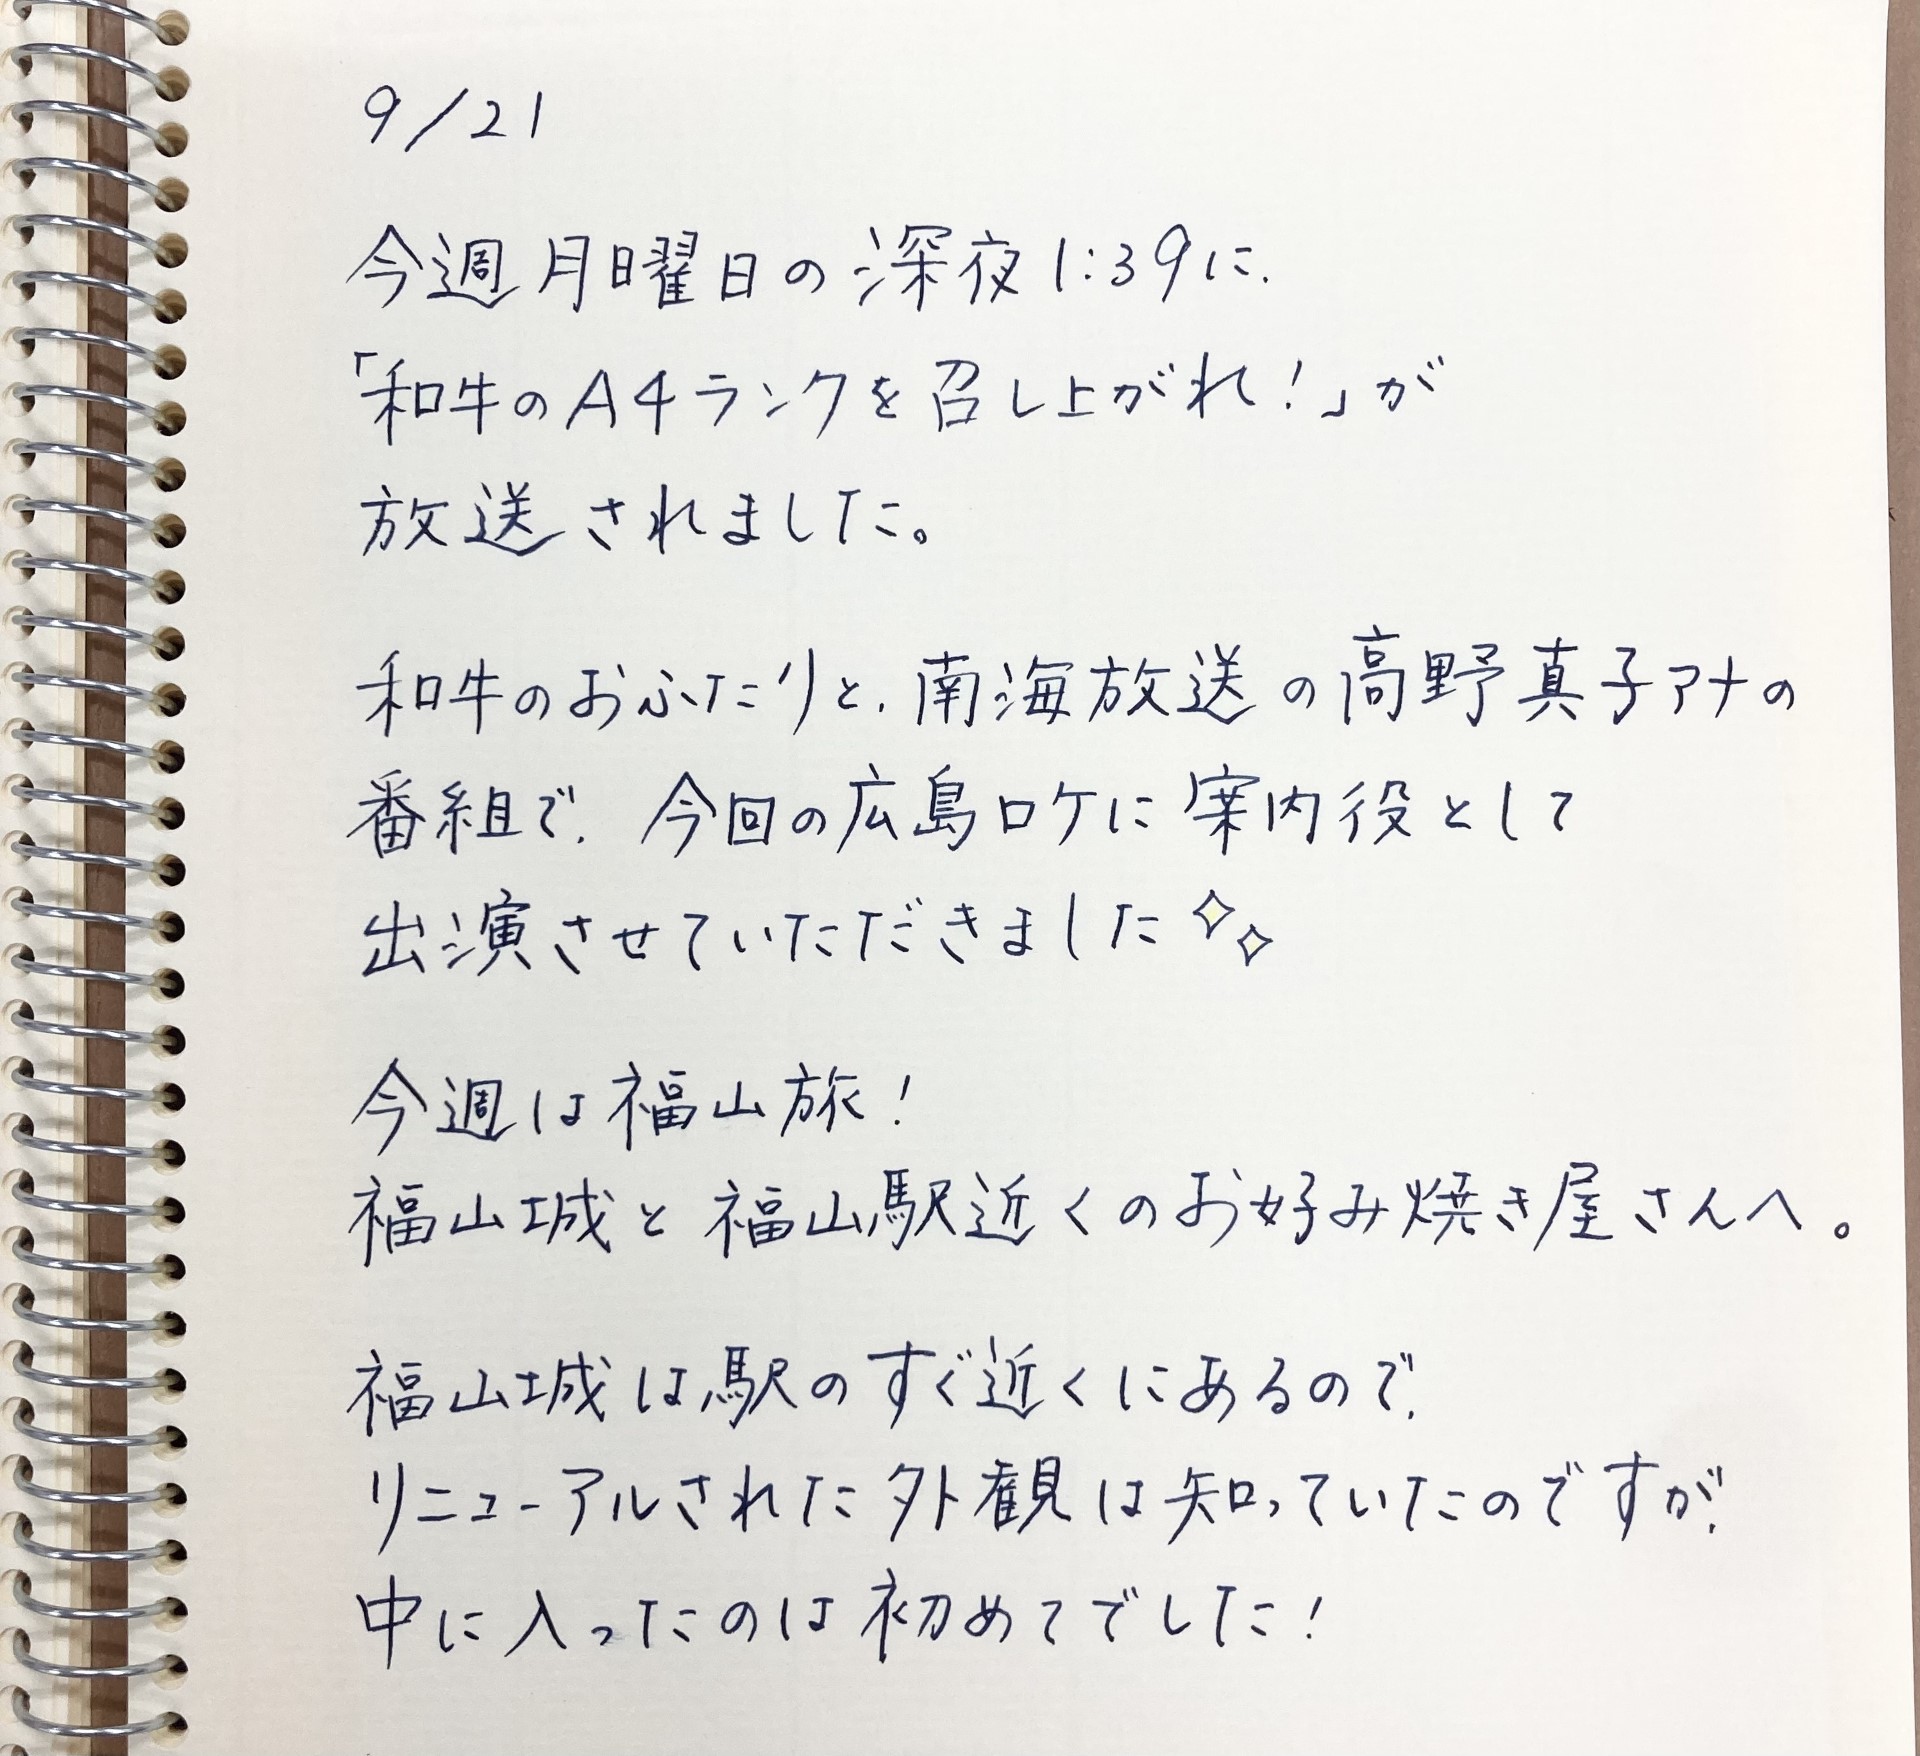 9/21
今週月曜日の深夜1:39に、
「和牛のA4ランクを召し上がれ!」が
放送されました。
和牛のおふたりと、南海放送の高野真子アナの
番組で、今回の広島ロケに案内役として
出演させていただきました
今週は福山旅!
福山城と福山駅近くのお好み焼き屋さんへ。
福山城は駅のすぐ近くにあるので、
リニューアルされた外観は知っていたのですが、
中に入ったのは初めてでした!